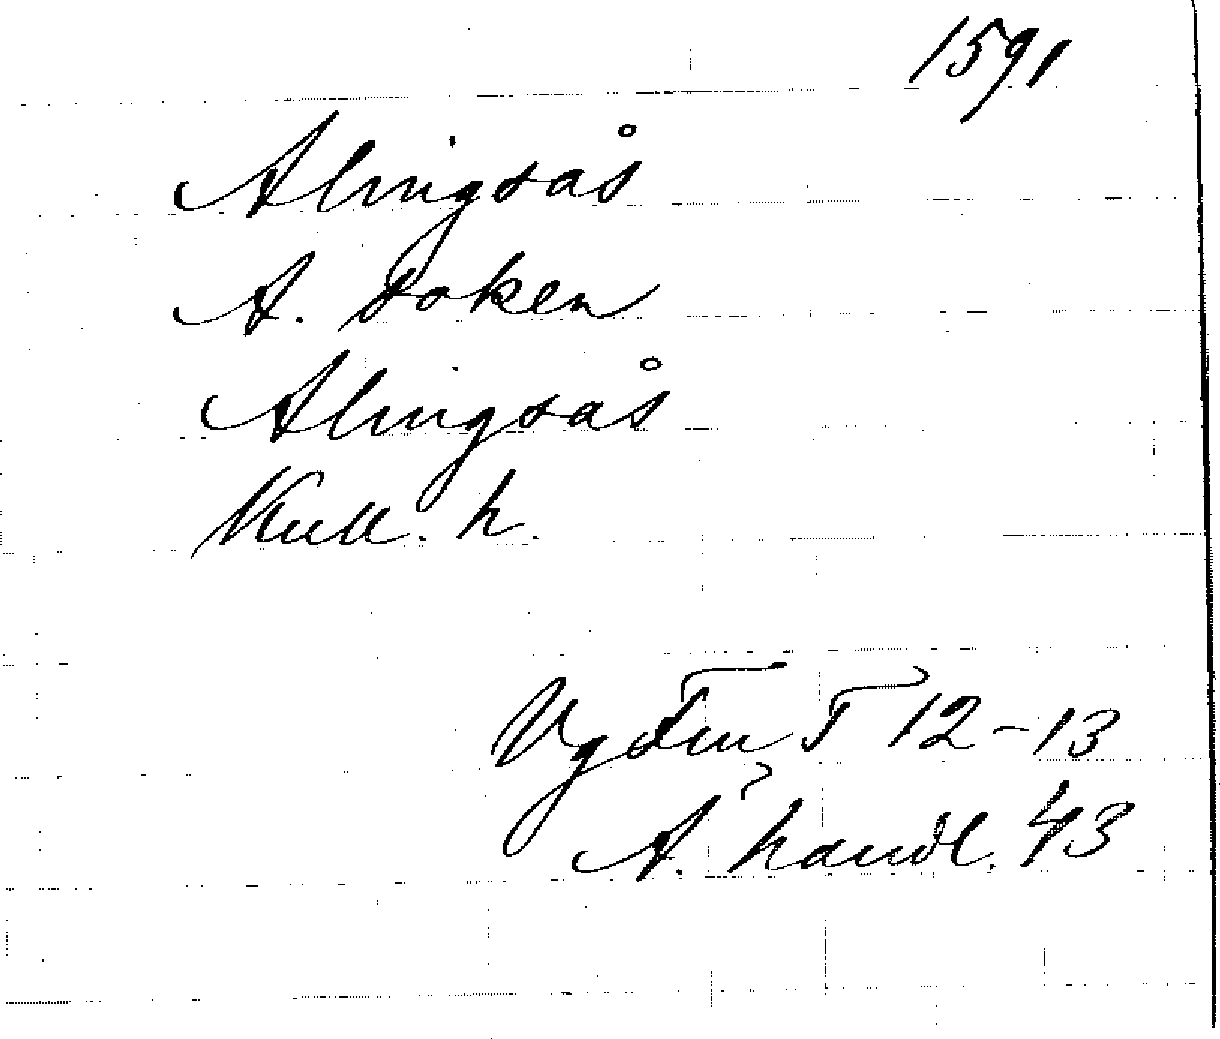 1591
Alingsås
A. socken
Alingsås
Kull. h.
Vg Fm T 12-13
A. handl. 43